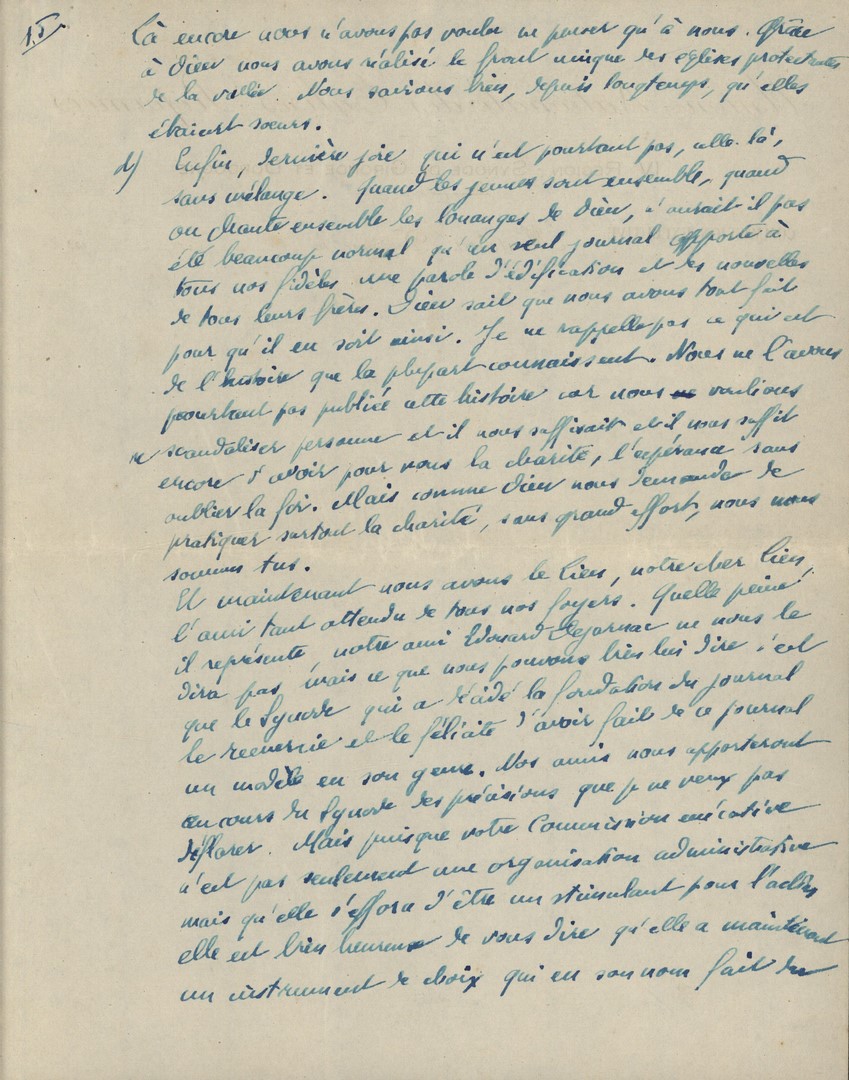 15.
Là encore nous n'avons pas voulu ne penser qu'à nous. Grâce
à Dieu nous avons réalisé le front unique des églises protestantes
de la vallée. Nous savions bien, depuis longtemps, qu'elles
étaient sœurs.
d) Enfin, dernière joie qui n'est pourtant pas, celle-là,
sans mélange. Quand les jeunes sont ensemble, quand
on chante ensemble les louanges de Dieu, n'aurait-il pas
été beaucoup normal qu'un seul journal apporte à
tous nos fidèles une parole d'édification et des nouvelles
de tous leurs frères. Dieu sait que nous avons tout fait
pour qu'il en soit ainsi. Je ne rappelle pas ce qui est
de l'histoire que la plupart connaissent. Nous ne l'avons
pourtant pas publiée cette histoire car nous ne voulions
ne scandaliser personne et il nous suffisait et il nous suffit
encore d'avoir pour nous la charité, l'espérance sans
oublier la foi. Mais comme Dieu nous demande de
pratiquer surtout la charité, sans grand effort, nous nous
sommes tus.
Et maintenant nous avons le Lien, notre cher Lien,
l'ami tant attendu de tous nos foyers. Quelle peine
il représente notre ami Edouard ne nous le
dira pas mais ce que nous pouvons bien lui dire c'est
que le Synode qui a décidé la fondation du journal
le remercie et le félicite d'avoir fait de ce journal
un modèle en son genre. Nos amis nous apporteront
au cours du Synode des précisions que je ne veux pas
déflorer. Mais puisque votre Commission exécutive
n'est pas seulement une organisation administrative
mais qu'elle s'efforce d'être un stimulant pour l'action
elle est bien heureuse de vous dire qu'elle a maintenant
un instrument de choix qui en son nom fait du